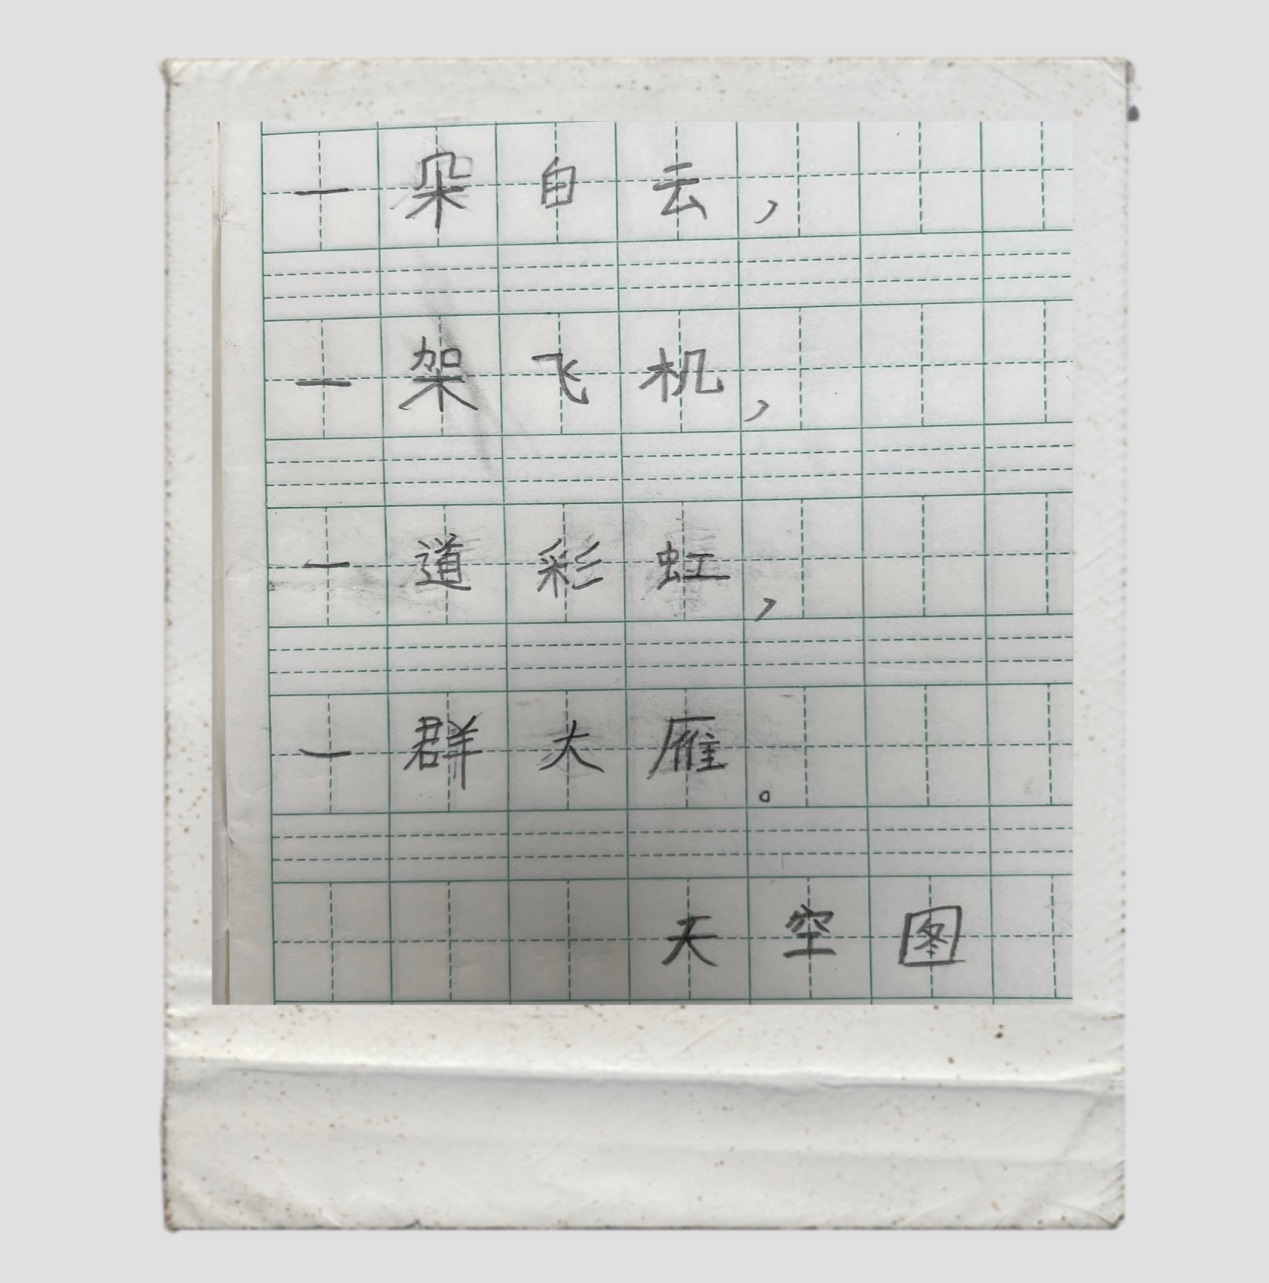 一朵白云，
一架飞机，
一道彩虹，
一群大雁。
天空图